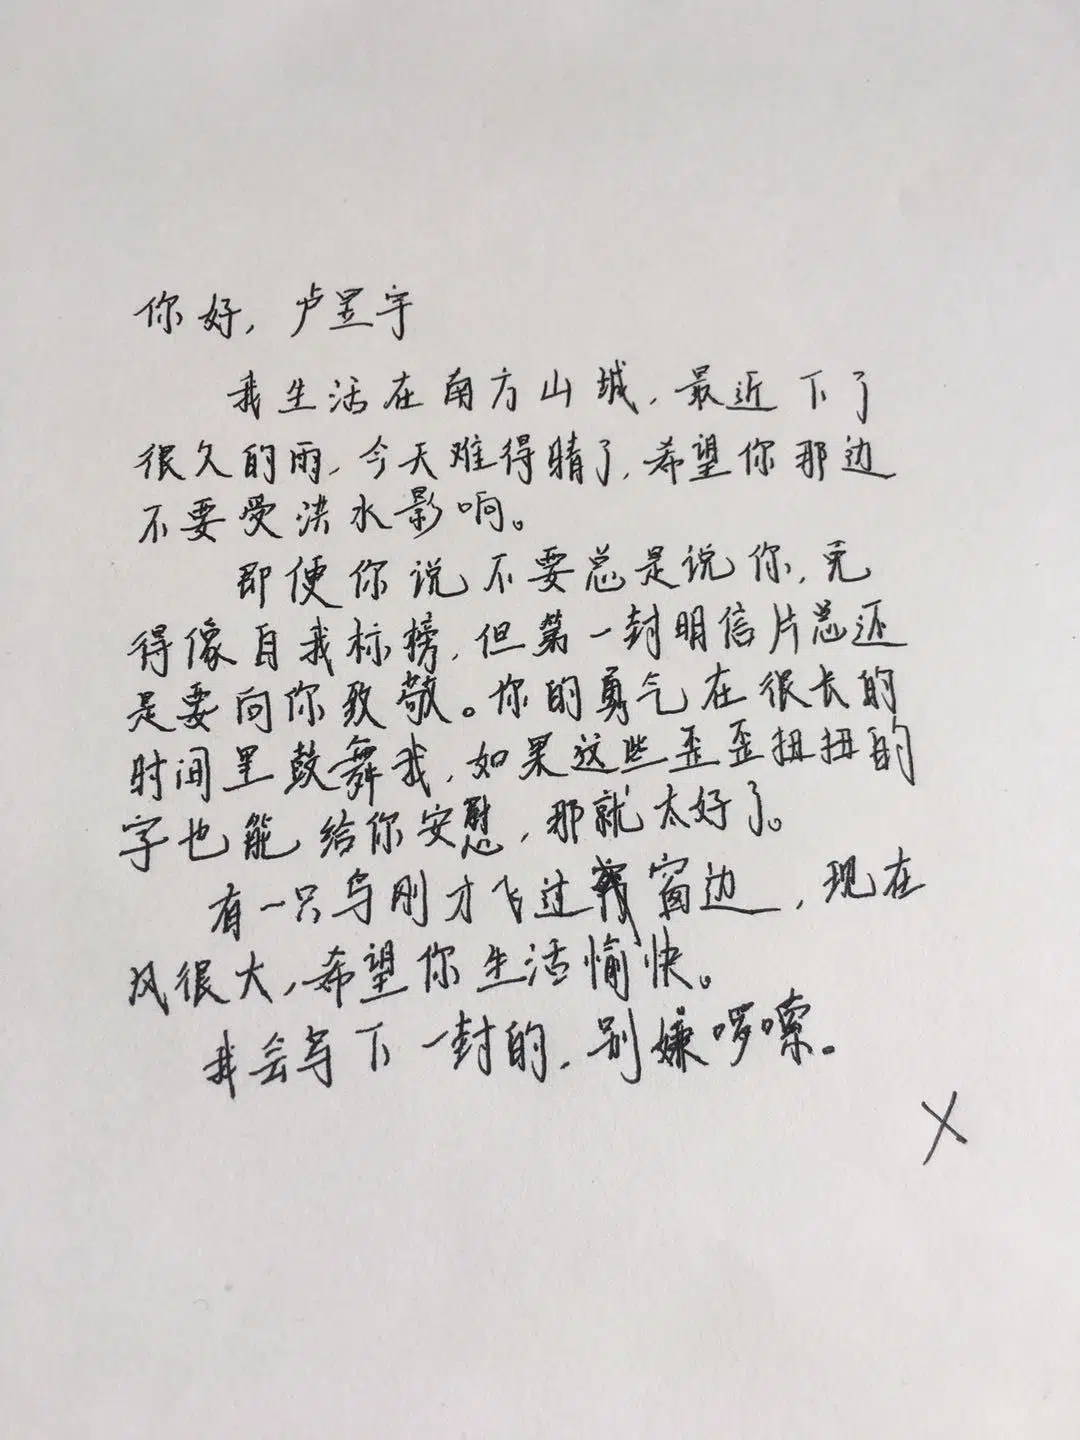 你好，卢昱宇
我生活在南方山城，最近下了
很久的雨，今天难得晴了，希望你那边
不要受洪水影响。
即便你说不要总是说你，免
得像自我标榜，但第一封明信片总还
是要向你致敬。你的勇气在很长的
时间里鼓舞我，如果这些歪歪扭扭的
字也能给你安慰，那就太好了。
有一只鸟刚才飞过窗边，现在
风很大，希望你生活愉快。
我会写下一封的，别嫌啰嗦。
X